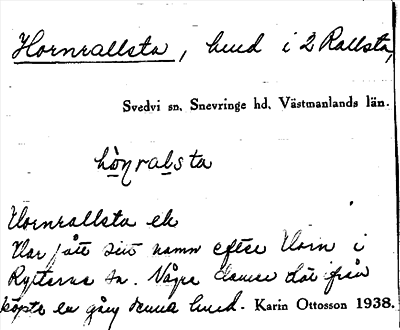 Hornrallsta, hmd i 2 Rallsta,
Svedvi sn. Snevringe hd. Västmanlands län.
hòṇralsta
Hornrallsta ek
Har fått sitt namn efter Horn i
Rytterns sn. Några damer där ifrån
köpte en gång denna hmd. Karin Ottosson 1938.